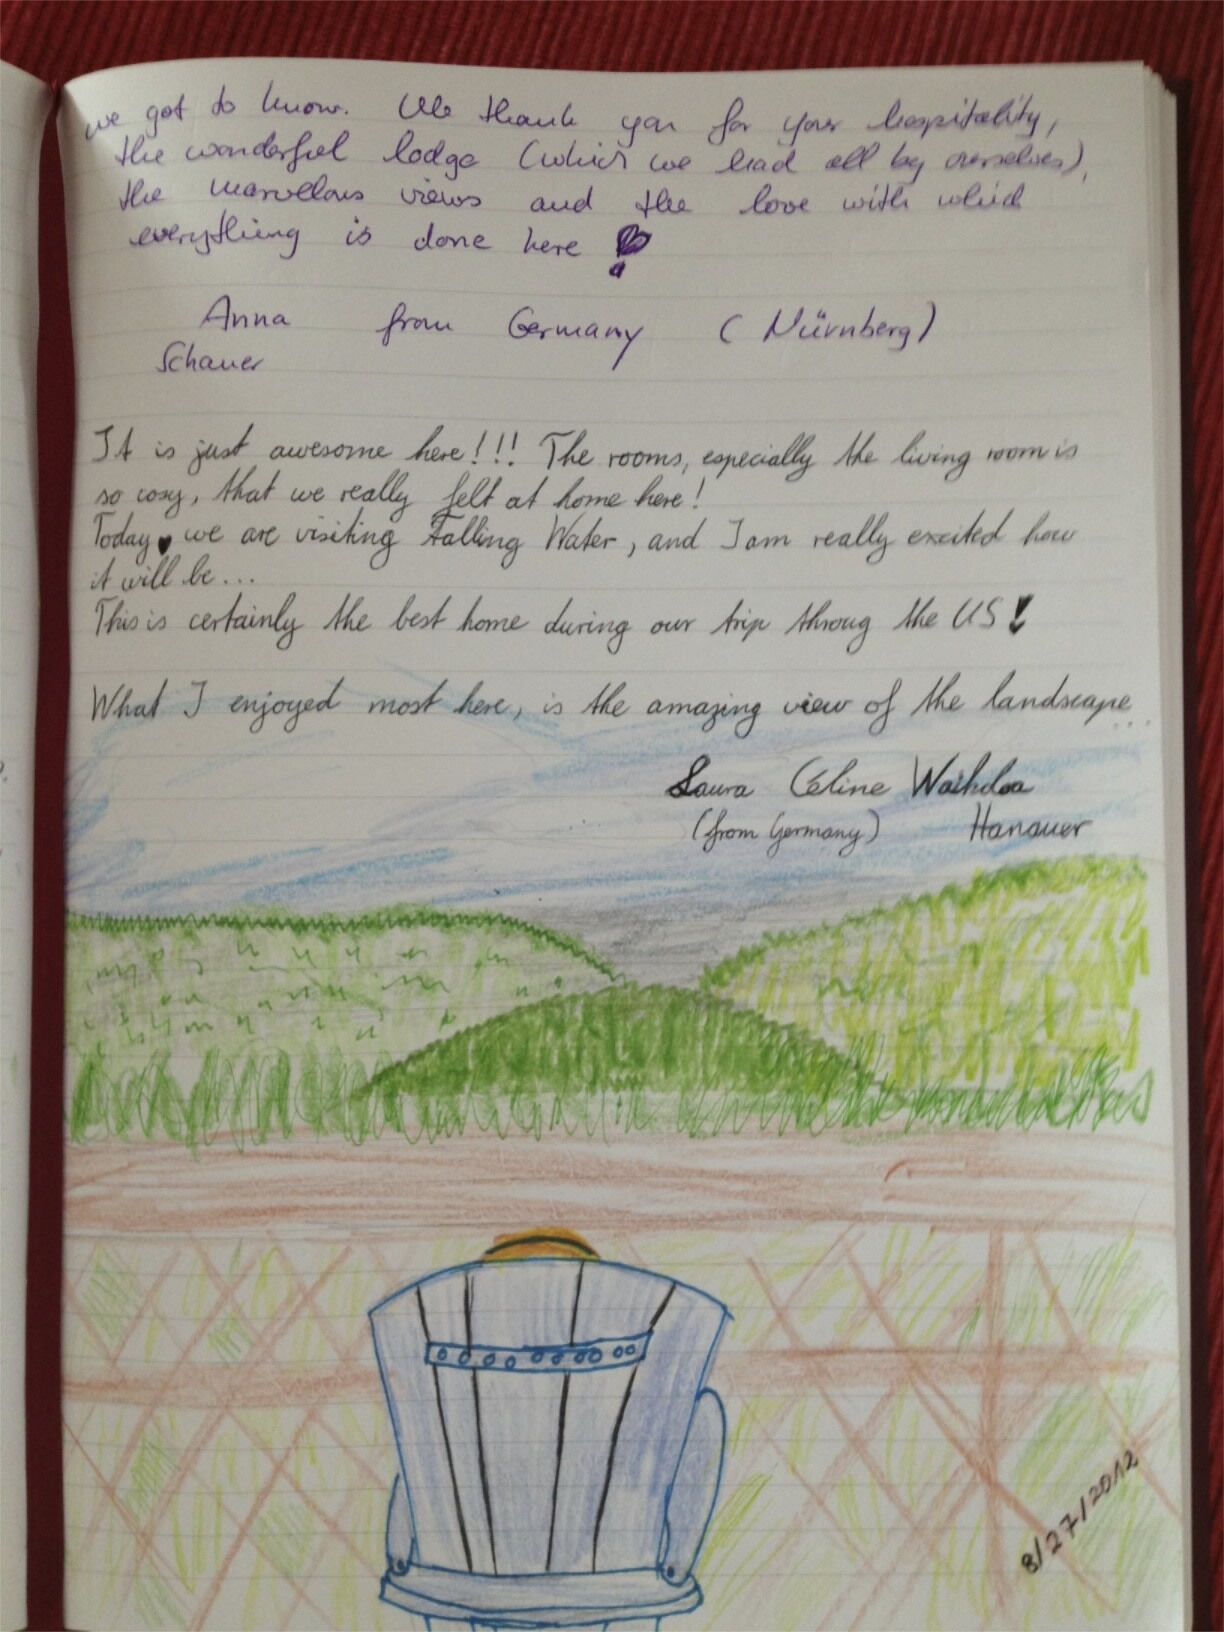 we got to know. We thank you for your hospitality,
the wonderful lodge (which we had all by ourselves),
the marvellous views and the love with which
everything is done here !
Anna from Germany (Nürnberg)
Schauer
It is just awesome here!!! The rooms, especially the living room is
so cosy, that we really felt at home here!
Today we are visiting Falling Water, and I am really excited how
it will be...
This is certainly the best home during our trip throug the US!
What I enjoyed most here, is the amazing view of the landscape...
Laura Céline
(from Germany) Hanauer
8/27/2012